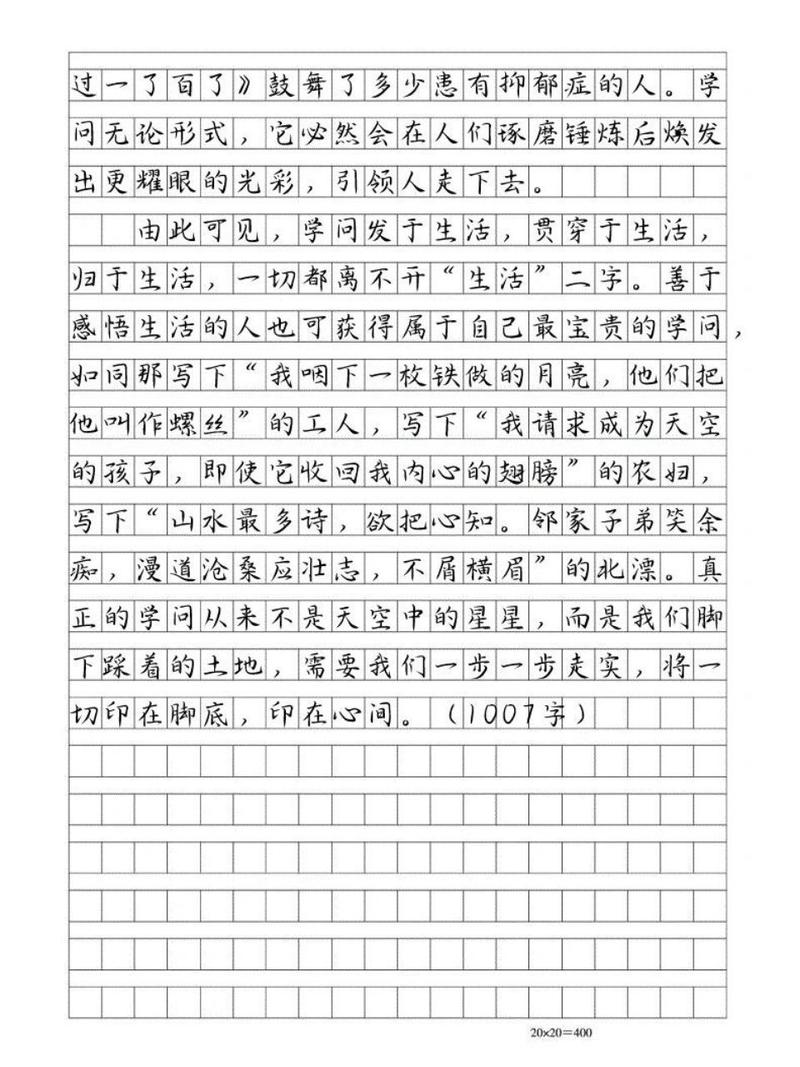 过一了百了》鼓舞了多少患有抑郁症的人。学
问无论形式，它必然会在人们琢磨锤炼后焕发
出更耀眼的光彩，引领人走下去。
由此可见，学问发于生活，贯穿于生活，
归于生活，一切都离不开“生活”二字。善于
感悟生活的人也可获得属于自己最宝贵的学问，
如同那写下“我咽下一枚铁做的月亮，他们把
他叫作螺丝”的工人，写下“我请求成为天空
的孩子，即使它收回我内心的翅膀”的农妇，
写下“山水最多诗，欲把心知。邻家子弟笑余
痴，漫道沧桑应壮志，不屑横眉”的北漂。真
正的学问从来不是天空中的星星，而是我们脚
下踩着的土地，需要我们一步一步走实，将一
切印在脚底，印在心间。（1007字）
20×20＝400